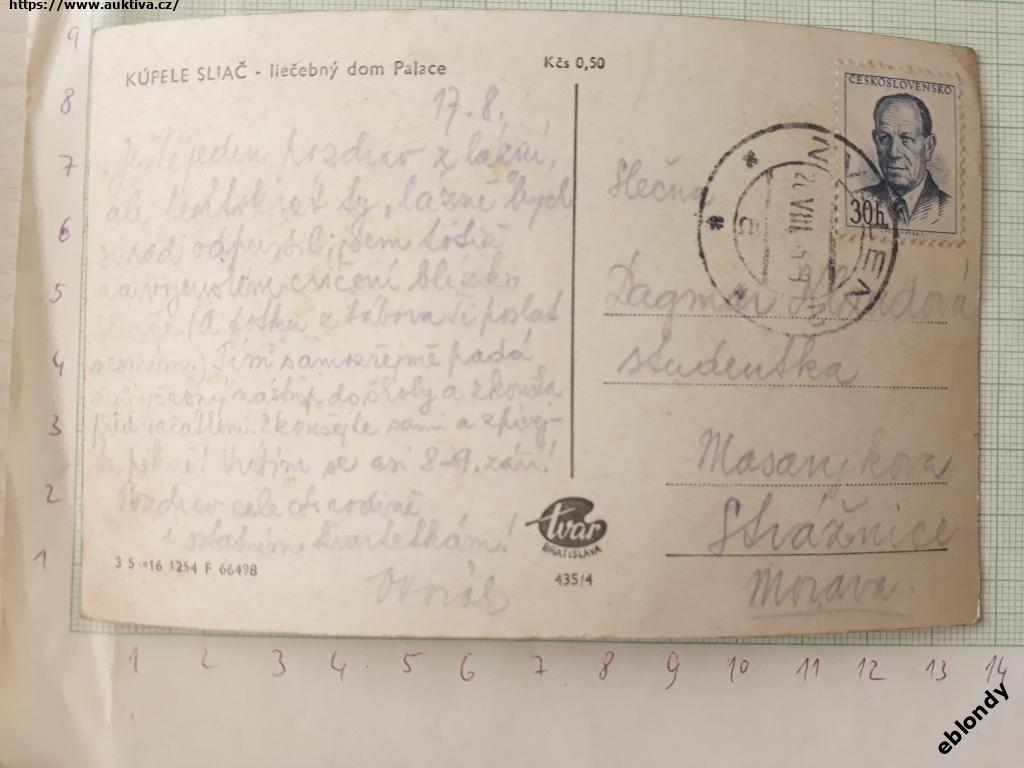 https://www.auktiva.cz/
KÚPELE SLIAČ - liečebný dom Palace
Kčs 0,50
17. 8.
Ještě jeden pozdrav z lázní,
ale tentokrát ty "lázně" bych
rád odpustil, jsem totiž
na vojenském cvičení blízko
Sliače. (A fotku z tábora Ti poslat
nesmím.) Tím samozřejmě padá
můj včasný nástup do školy a zkouška
před začátkem. Zkoušejte sami a zpívej-
te pěkně! Vrátím se asi 8-9. září!
Pozdrav celé ct. rodině
i ostatním kvartetkám!
3 5 416 1254 F 66498
tvar
BRATISLAVA
435/4
ČESKOSLOVENSKO
30h
21. VIII.
Slečna
Dagmar
studentka
Masarykova
Strážnice
Morava.
9
8
7
6
5
4
3
2
1
1 2 3 4 5 6 7 8 9 10 11 12 13 14
eblondy